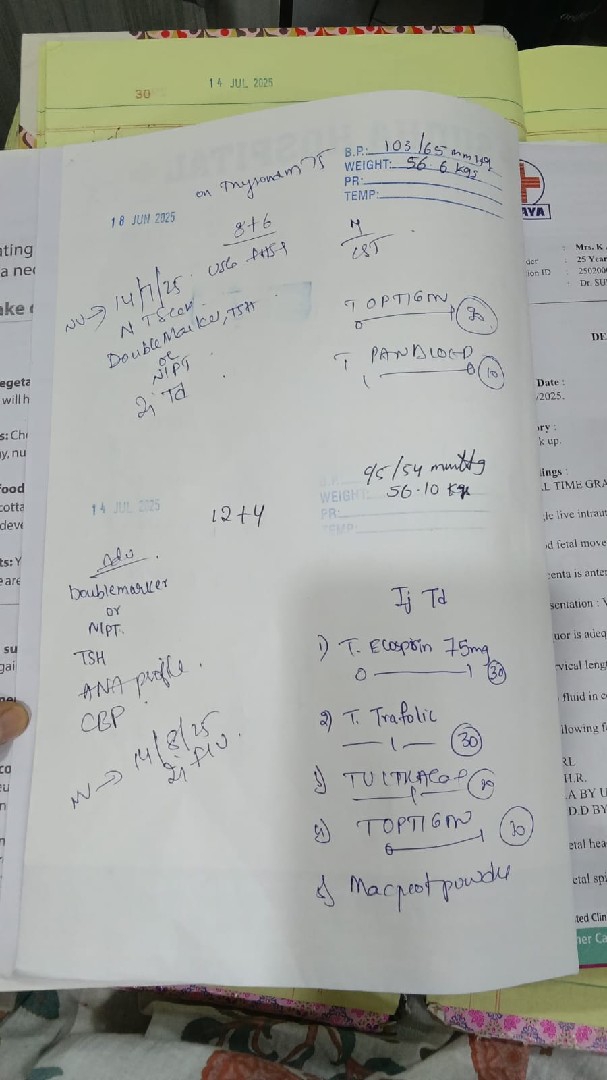 30
14 JUL 2025
B.P.: 103/65 mmHg
WEIGHT: 56.6 kgs
PR:
TEMP:
18 JUN 2025
on
8+6
NV → 14/7/25
NT Scan
Double Marker, TSH
or
NIPT
2j Td
CST
T OPTIGIN
0 1
T.
1 0 10
14 JUL 2025
12+4
95/54 mmHg
WEIGHT: 56.10 kgs
PR:
TEMP:
Adv
Doublemarker
or
NIPT.
TSH
ANA profile.
CBP
NV → 14/8/25
Ij Td
1) T. Ecosprin 75mg
0 1 30
2) T. Trafolic
1 30
3)
4) T OPTIGIN
0 1 30
5) powder
AYA
Mrs. K
25 Year
ion ID : 250200
Dr. SU
DE
Date :
/2025.
ory :
k up.
ings :
L TIME GRA
le live intraut
d fetal move
centa is anter
sentation : V
uor is adeq
vical leng
fluid in c
llowing f
H.R.
A BY U
D.D BY
etal hea
etal spi
ted Clin
her Ca
ating
a nee
ake
egeta
will h
s: Chi
y, nu
food
cotta
deve
ts: Y
e are
su
gai